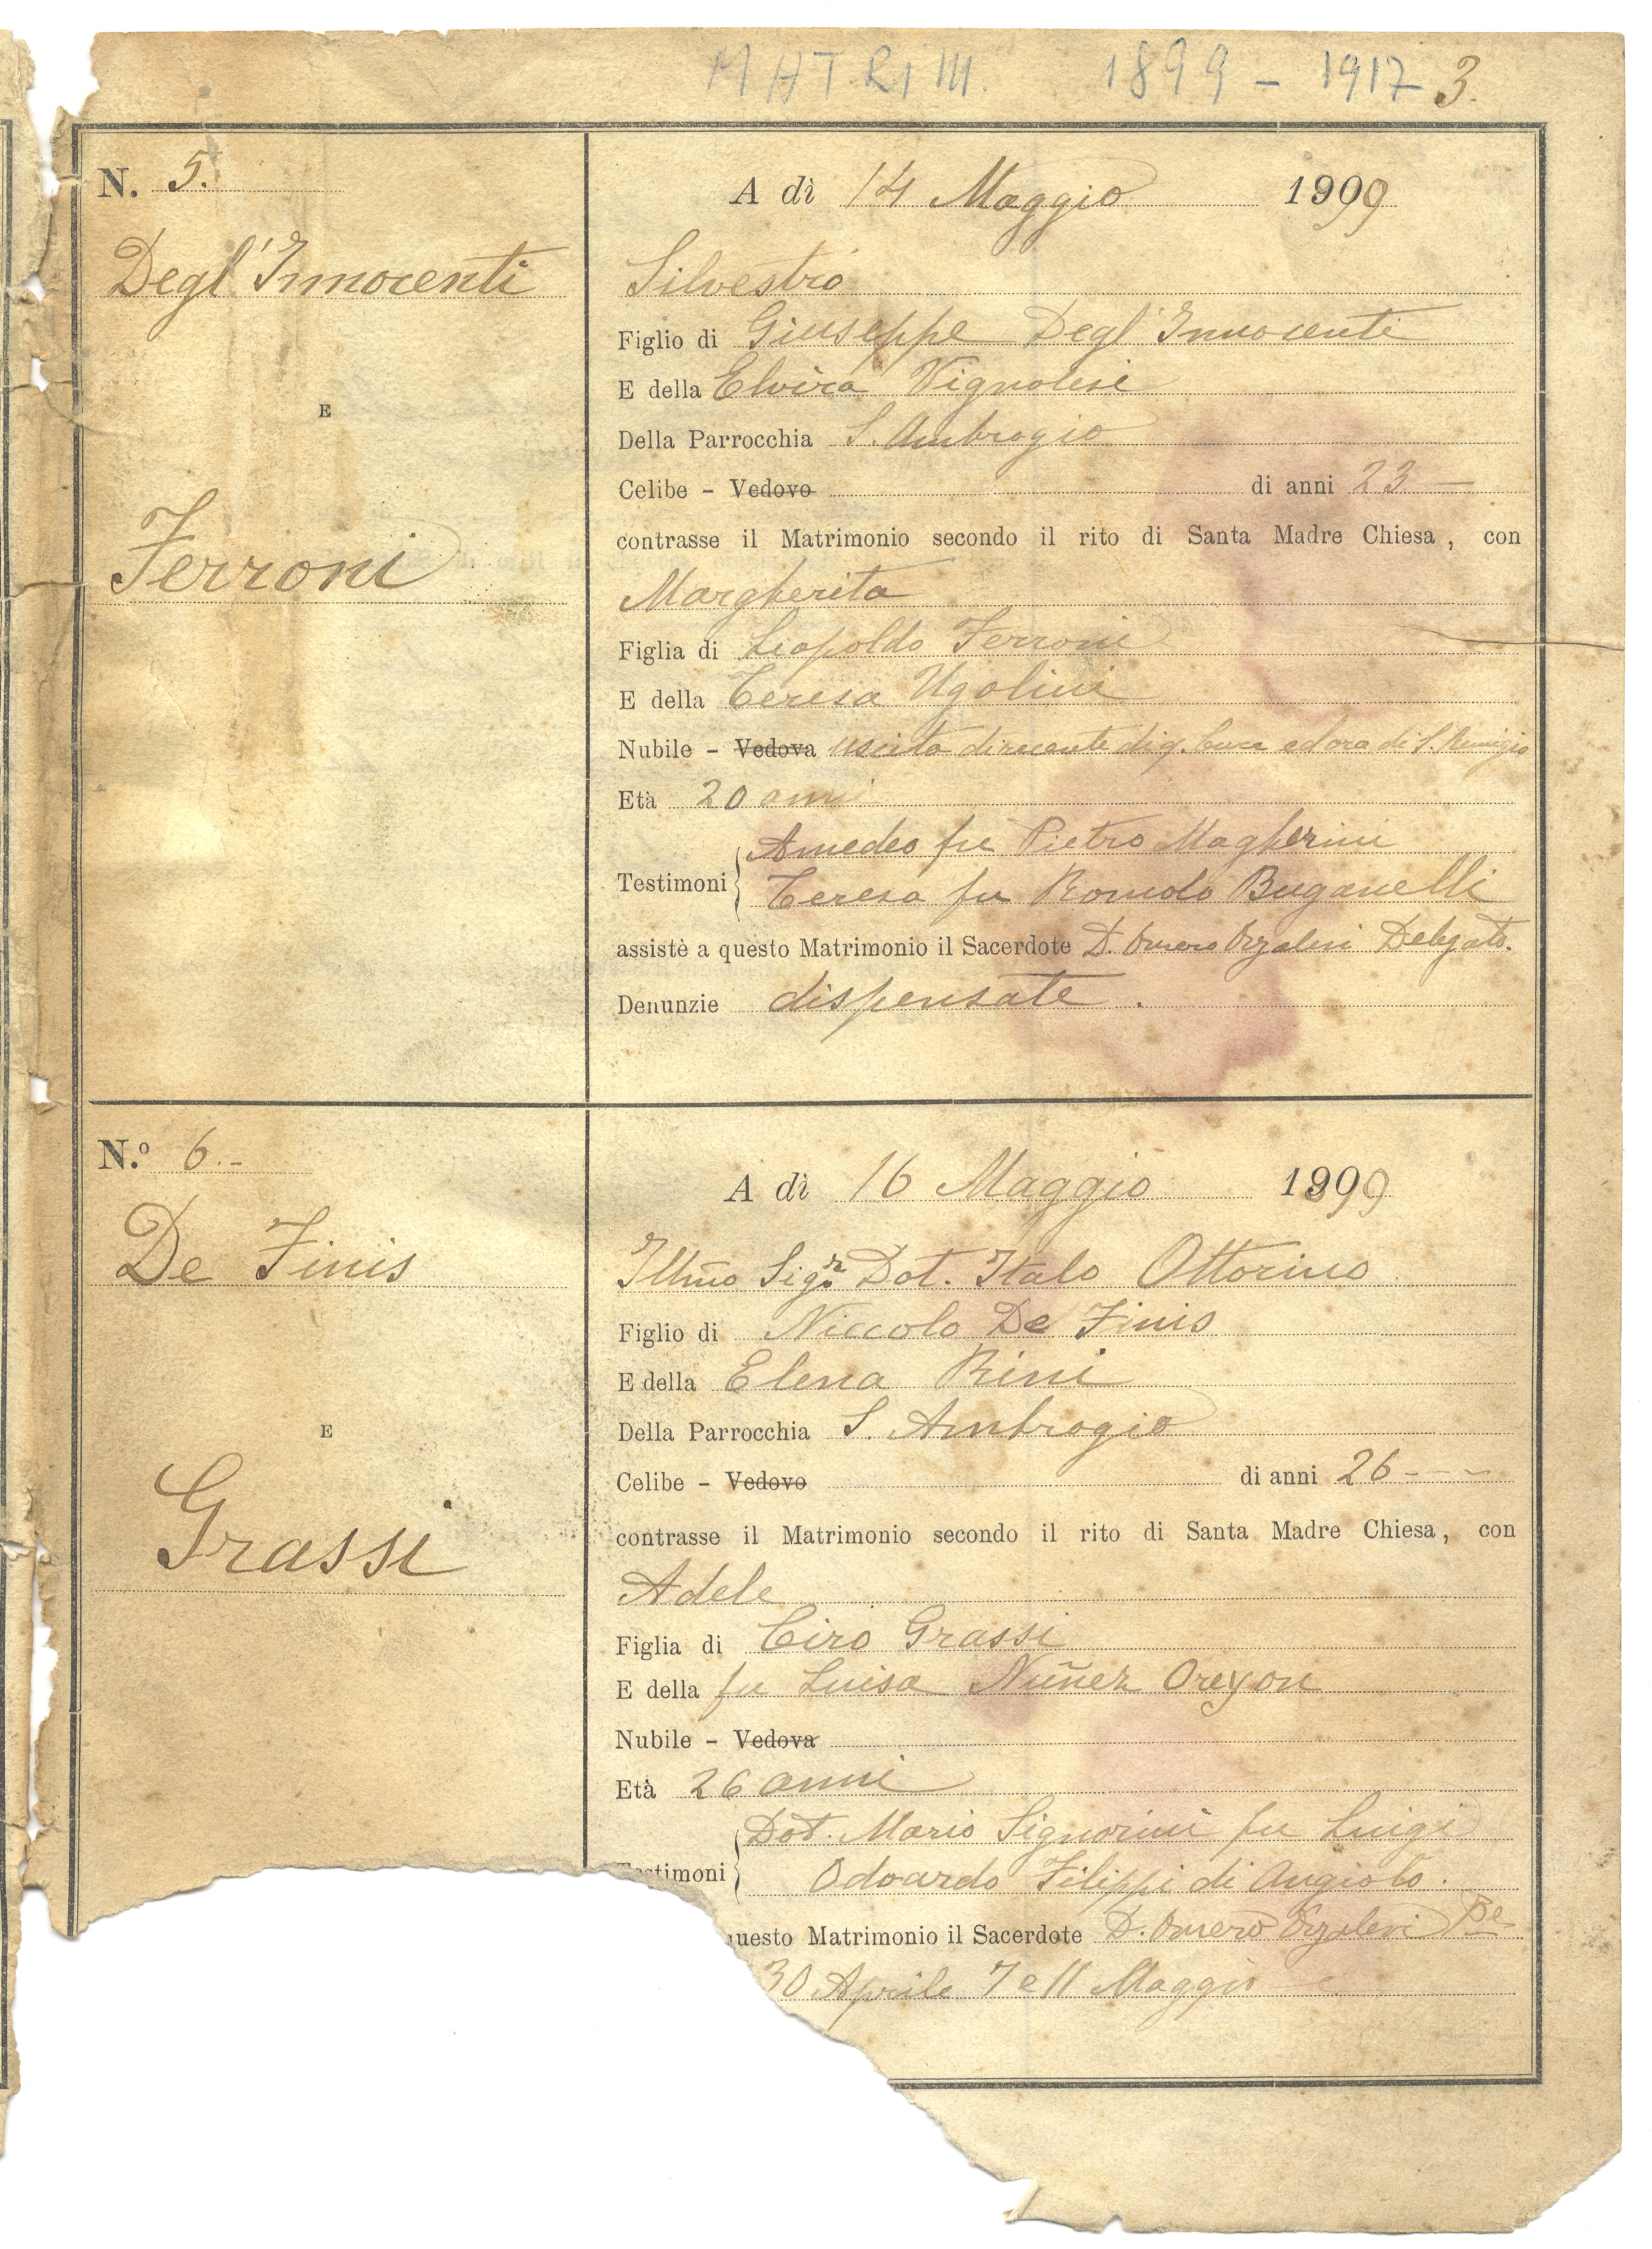 MATRIM. 1899 - 1917 3.
N. 5.
A dì 14 Maggio 1999
Degl'Innocenti
Silvestro
Figlio di Giuseppe Degl'Innocenti
E della Elvira Vignolesi
Della Parrocchia S. Ambrogio
E
Celibe - Vedovo di anni 23 —
contrasse il Matrimonio secondo il rito di Santa Madre Chiesa, con
Ferroni
Margherita
Figlia di Leopoldo Ferroni
E della Teresa Ugolini
Nubile - Vedova uscita di recente di q. cura ed ora di S. Remigio
Età 20 anni
Testimoni Amedeo fu Pietro Magherini
Teresa fu Romolo Buganelli
assistè a questo Matrimonio il Sacerdote D. Omero Orzalesi Delegato.
Denunzie dispensate.
N.º 6.-
A dì 16 Maggio 1899
De Finis
Illmo Sigr. Dot. Italo Ottorino
Figlio di Niccolo De Finis
E della Elena Rini
Della Parrocchia S. Ambrogio
E
Celibe - Vedovo di anni 26 - - ~
contrasse il Matrimonio secondo il rito di Santa Madre Chiesa, con
Grassi
Adele
Figlia di Ciro Grassi
E della fu Luisa Nuñez Oreyon
Nubile - Vedova
Età 26 anni
stimoni Dot. Mario Signorini fu Luigi
Odoardo Filippi di Angiolo.
uesto Matrimonio il Sacerdote D. Omero Orzalesi
30 Aprile 7 e 11 Maggio